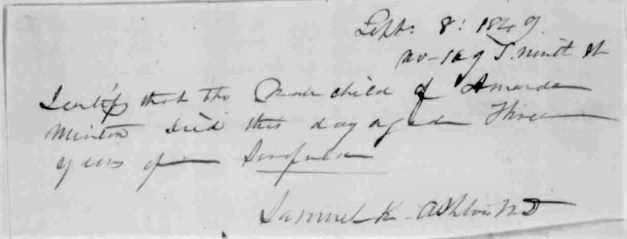 Sept: 8: 1849.
No-169 S. ninth st
I certify that the Male child of Amanda
Minton died this day aged Three
years of Scrofula
Samuel K Ashton MD